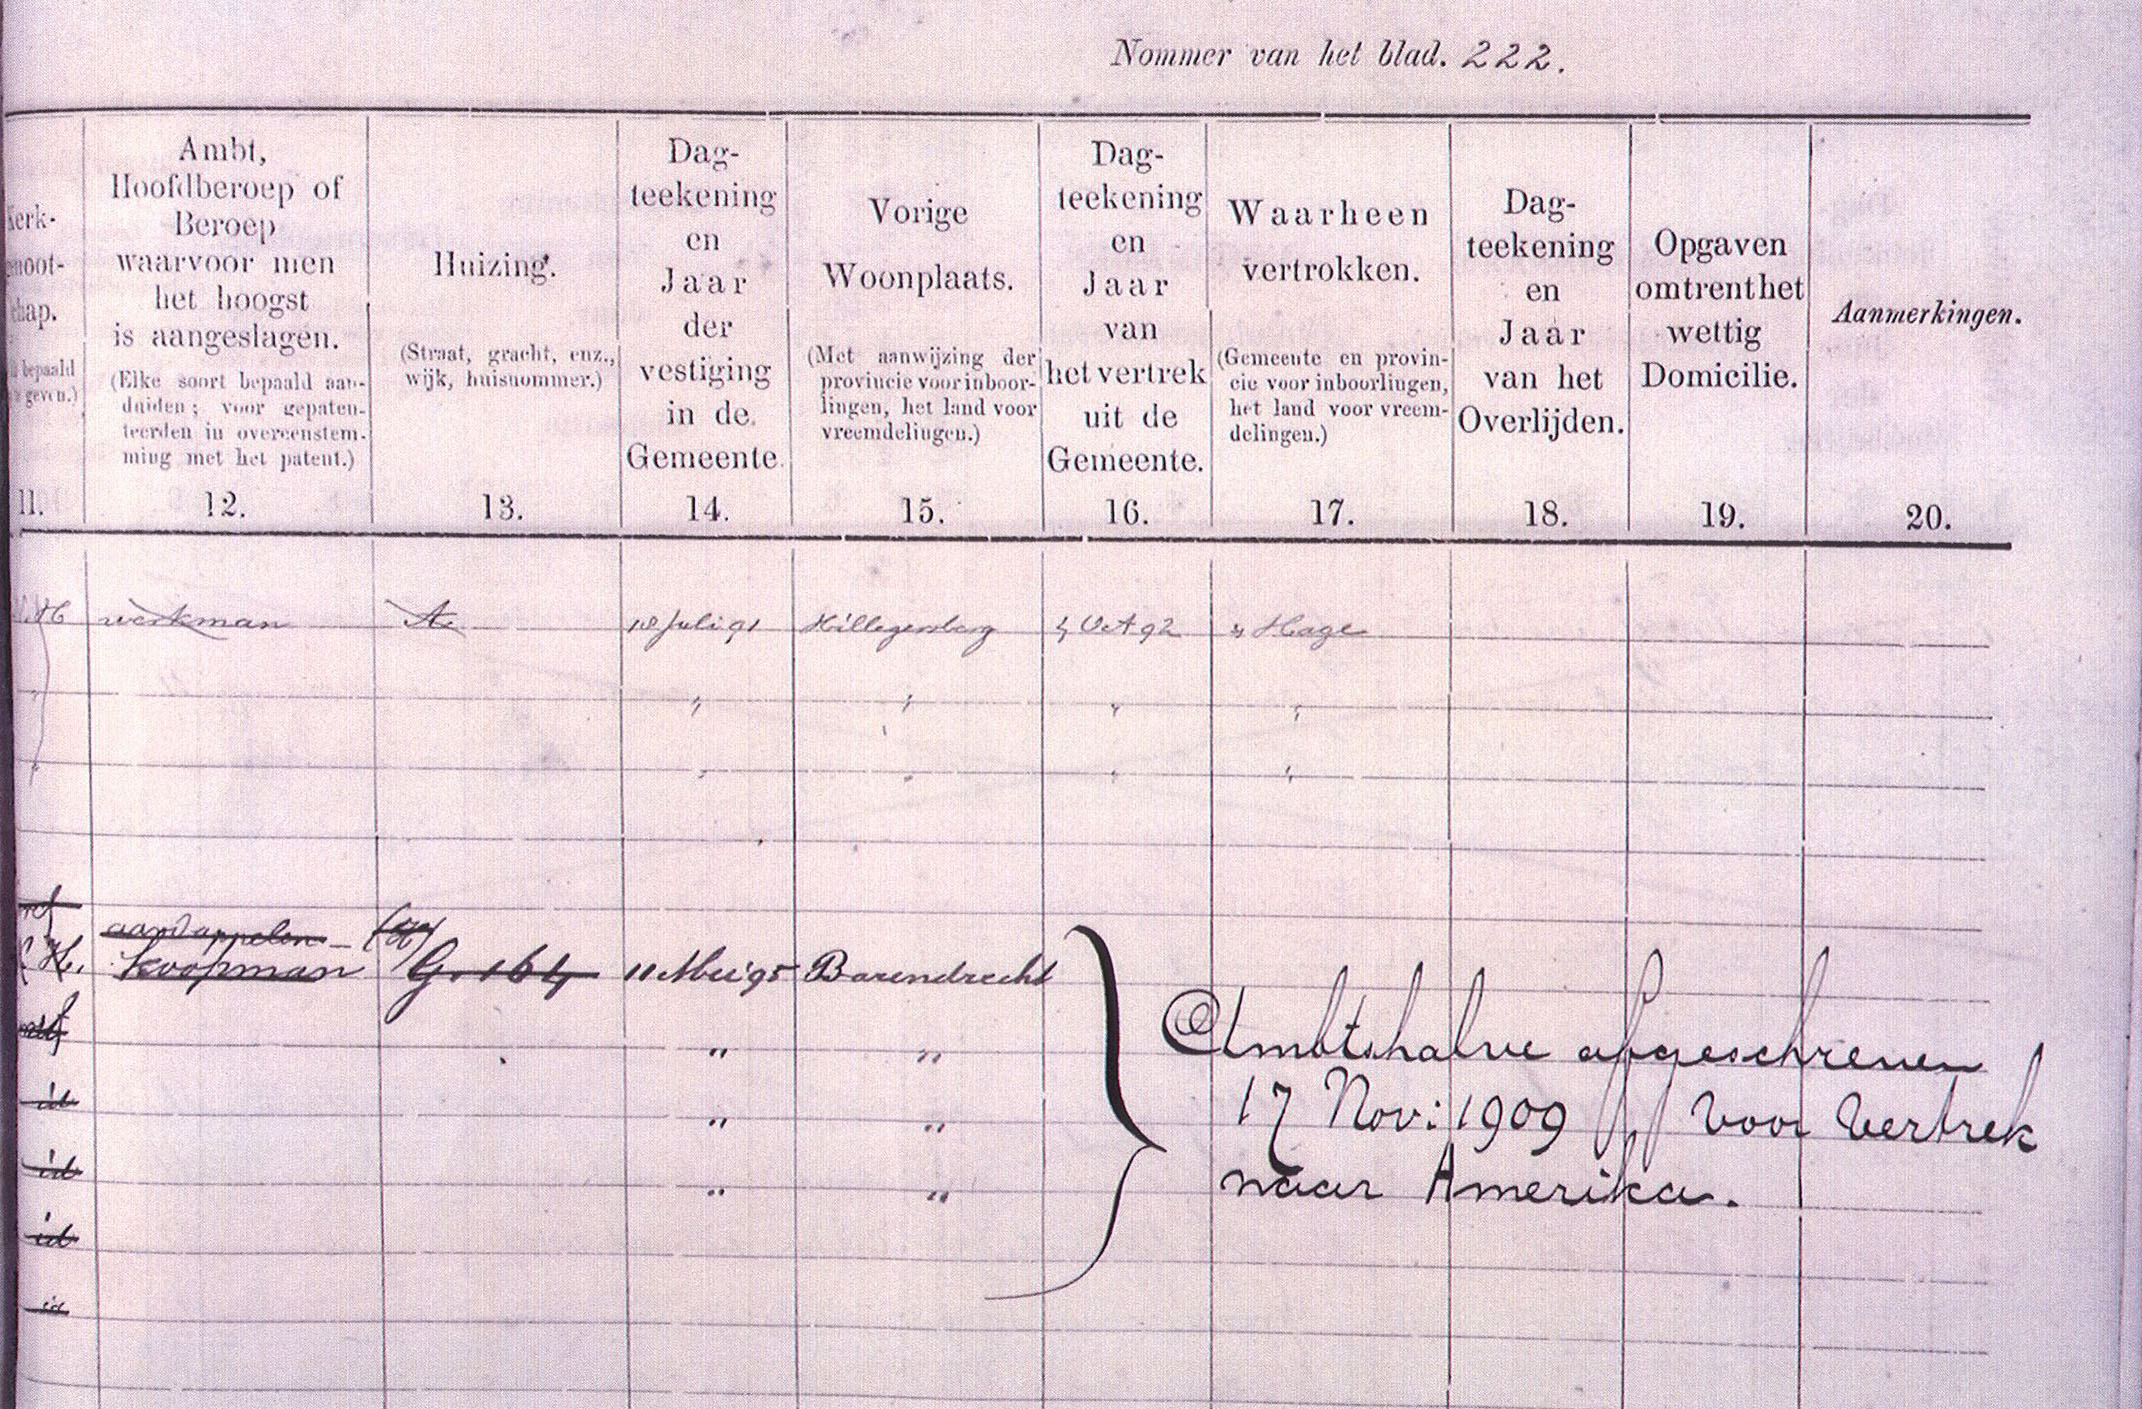 Nommer van het blad. 222.
Kerk-
noot-
chap.
bepaald
geven.)
11.
Ambt,
Hoofdberoep of
Beroep
waarvoor men
het hoogst
is aangeslagen.
(Elke soort bepaald aan-
duiden; voor gepaten-
teerden in overeenstem-
ming met het patent.)
12.
Huizing.
(Straat, gracht, enz.,
wijk, huisnommer.)
13.
Dag-
teekening
en
Jaar
der
vestiging
in de
Gemeente.
14.
Vorige
Woonplaats.
(Met aanwijzing der
provincie voor inboor-
lingen, het land voor
vreemdelingen.)
15.
Dag-
teekening
en
Jaar
van
het vertrek
uit de
Gemeente.
16.
Waarheen
vertrokken.
(Gemeente en provin-
cie voor inboorlingen,
het land voor vreem-
delingen.)
17.
Dag-
teekening
en
Jaar
van het
Overlijden.
18.
Opgaven
omtrent het
wettig
Domicilie.
19.
Aanmerkingen.
20.
werkman Juli 91 Hillegersberg 4 Oct 92 Hage
" " " "
" " " "
aardappelen-
koopman G. 164 11 Mei 95 Barendrecht
" "
id " "
id " "
id
id
Ambtshalve afgeschreven
17 Nov: 1909 voor vertrek
naar Amerika.